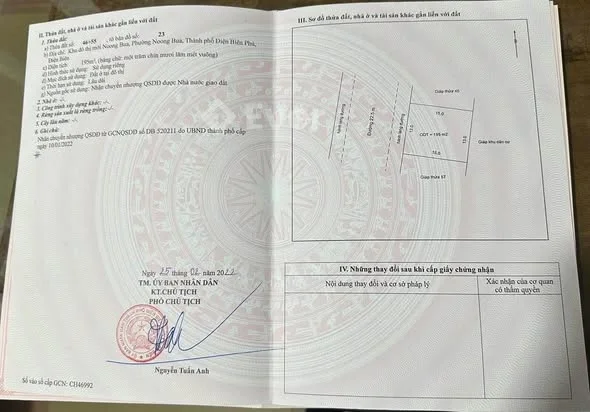 II. Thửa đất, nhà ở và tài sản khác gắn liền với đất
1. Thửa đất:
a) Thửa đất số: 46+55 , tờ bản đồ số: 23
b) Địa chỉ: Khu đô thị mới Noong Bua, Phường Noong Bua, Thành phố Điện Biên Phủ,
Điện Biên
c) Diện tích: 195m², (bằng chữ: một trăm chín mươi lăm mét vuông)
d) Hình thức sử dụng: Sử dụng riêng
đ) Mục đích sử dụng: Đất ở tại đô thị
e) Thời hạn sử dụng: Lâu dài
g) Nguồn gốc sử dụng: Nhận chuyển nhượng QSDĐ được Nhà nước giao đất
2. Nhà ở: -/-
3. Công trình xây dựng khác: -/-
4. Rừng sản xuất là rừng trồng: -/-
5. Cây lâu năm: -/-
6. Ghi chú:
Nhận chuyển nhượng QSDĐ từ GCNQSDĐ số DB 520211 do UBND thành phố cấp
ngày 10/01/2022
Ngày 25 tháng 02 năm 2022
TM. ỦY BAN NHÂN DÂN
KT.CHỦ TỊCH
PHÓ CHỦ TỊCH
Nguyễn Tuấn Anh
Số vào sổ cấp GCN: CH46992
III. Sơ đồ thửa đất, nhà ở và tài sản khác gắn liền với đất
Giáp thửa 45
Hành lang đường
Đường 22.5 m
Hành lang đường
15.0
13.0
ODT = 195 m2
13.0
15.0
Giáp khu dân cư
Giáp thửa 57
IV. Những thay đổi sau khi cấp giấy chứng nhận
Nội dung thay đổi và cơ sở pháp lý
Xác nhận của cơ quan
có thẩm quyền